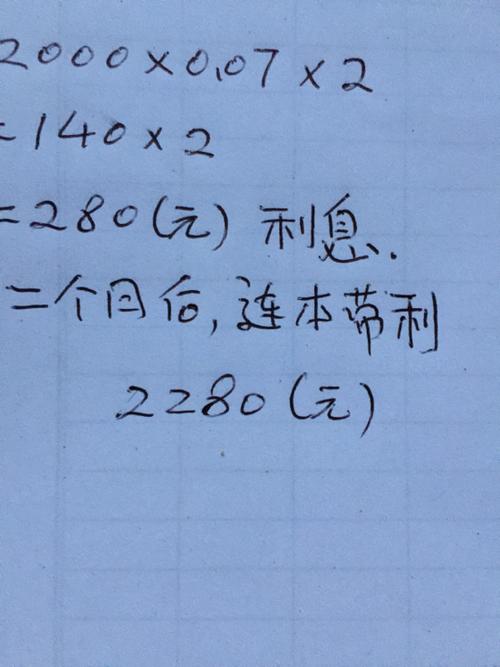 2000×0.07×2
=140×2
=280(元) 利息.
二个月后,连本带利
2280(元)